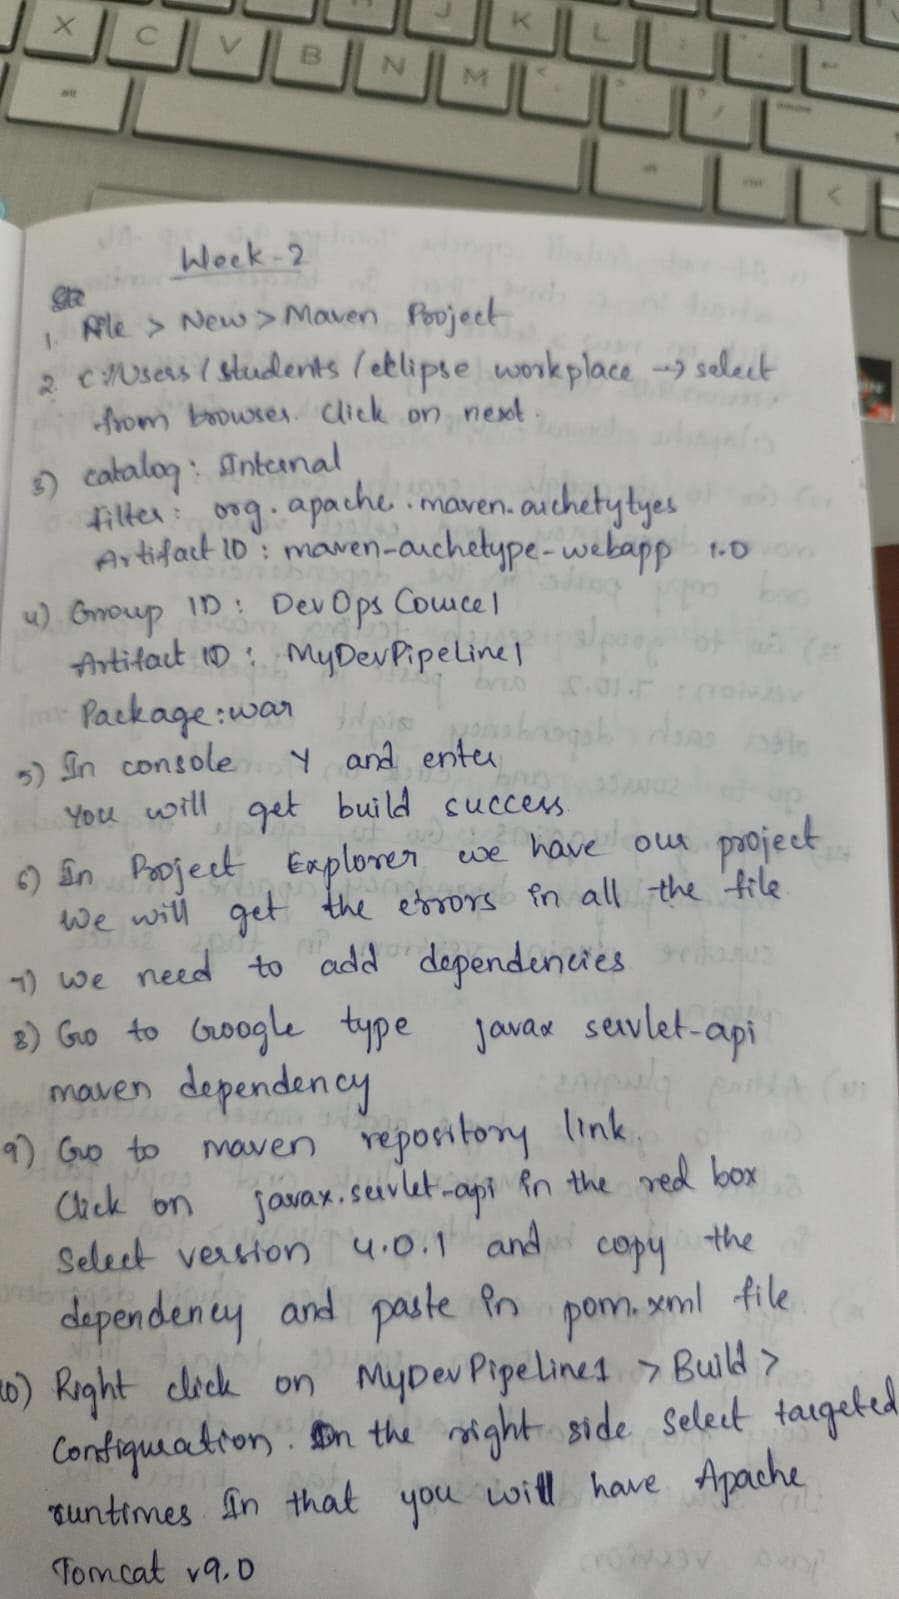 X C V B N M J K L
alt
alt
Week-2
1. File > New > Maven Project
2. C://Users / students / eklipse workplace → select
from browser. Click on next.
3) catalog: Internal
Filter: org.apache.maven.archetytyes
Artifact ID : maven-archetype-webapp 1.0
4) Group ID : DevOps Cource1
Artifact ID : MyDevPipeLine1
Package : war
5) In console Y and enter
You will get build success.
6) In Project Explorer we have our project
We will get the errors in all the file.
7) we need to add dependencies.
8) Go to Google type javax servlet-api
maven dependency
9) Go to maven repository link.
Click on javax.servlet-api in the red box
Select version 4.0.1 and copy the
dependency and paste in pom.xml file
10) Right click on MyDevPipeline1 > Build >
Configuration. In the right side select targeted
runtimes. In that you will have Apache
Tomcat v9.0